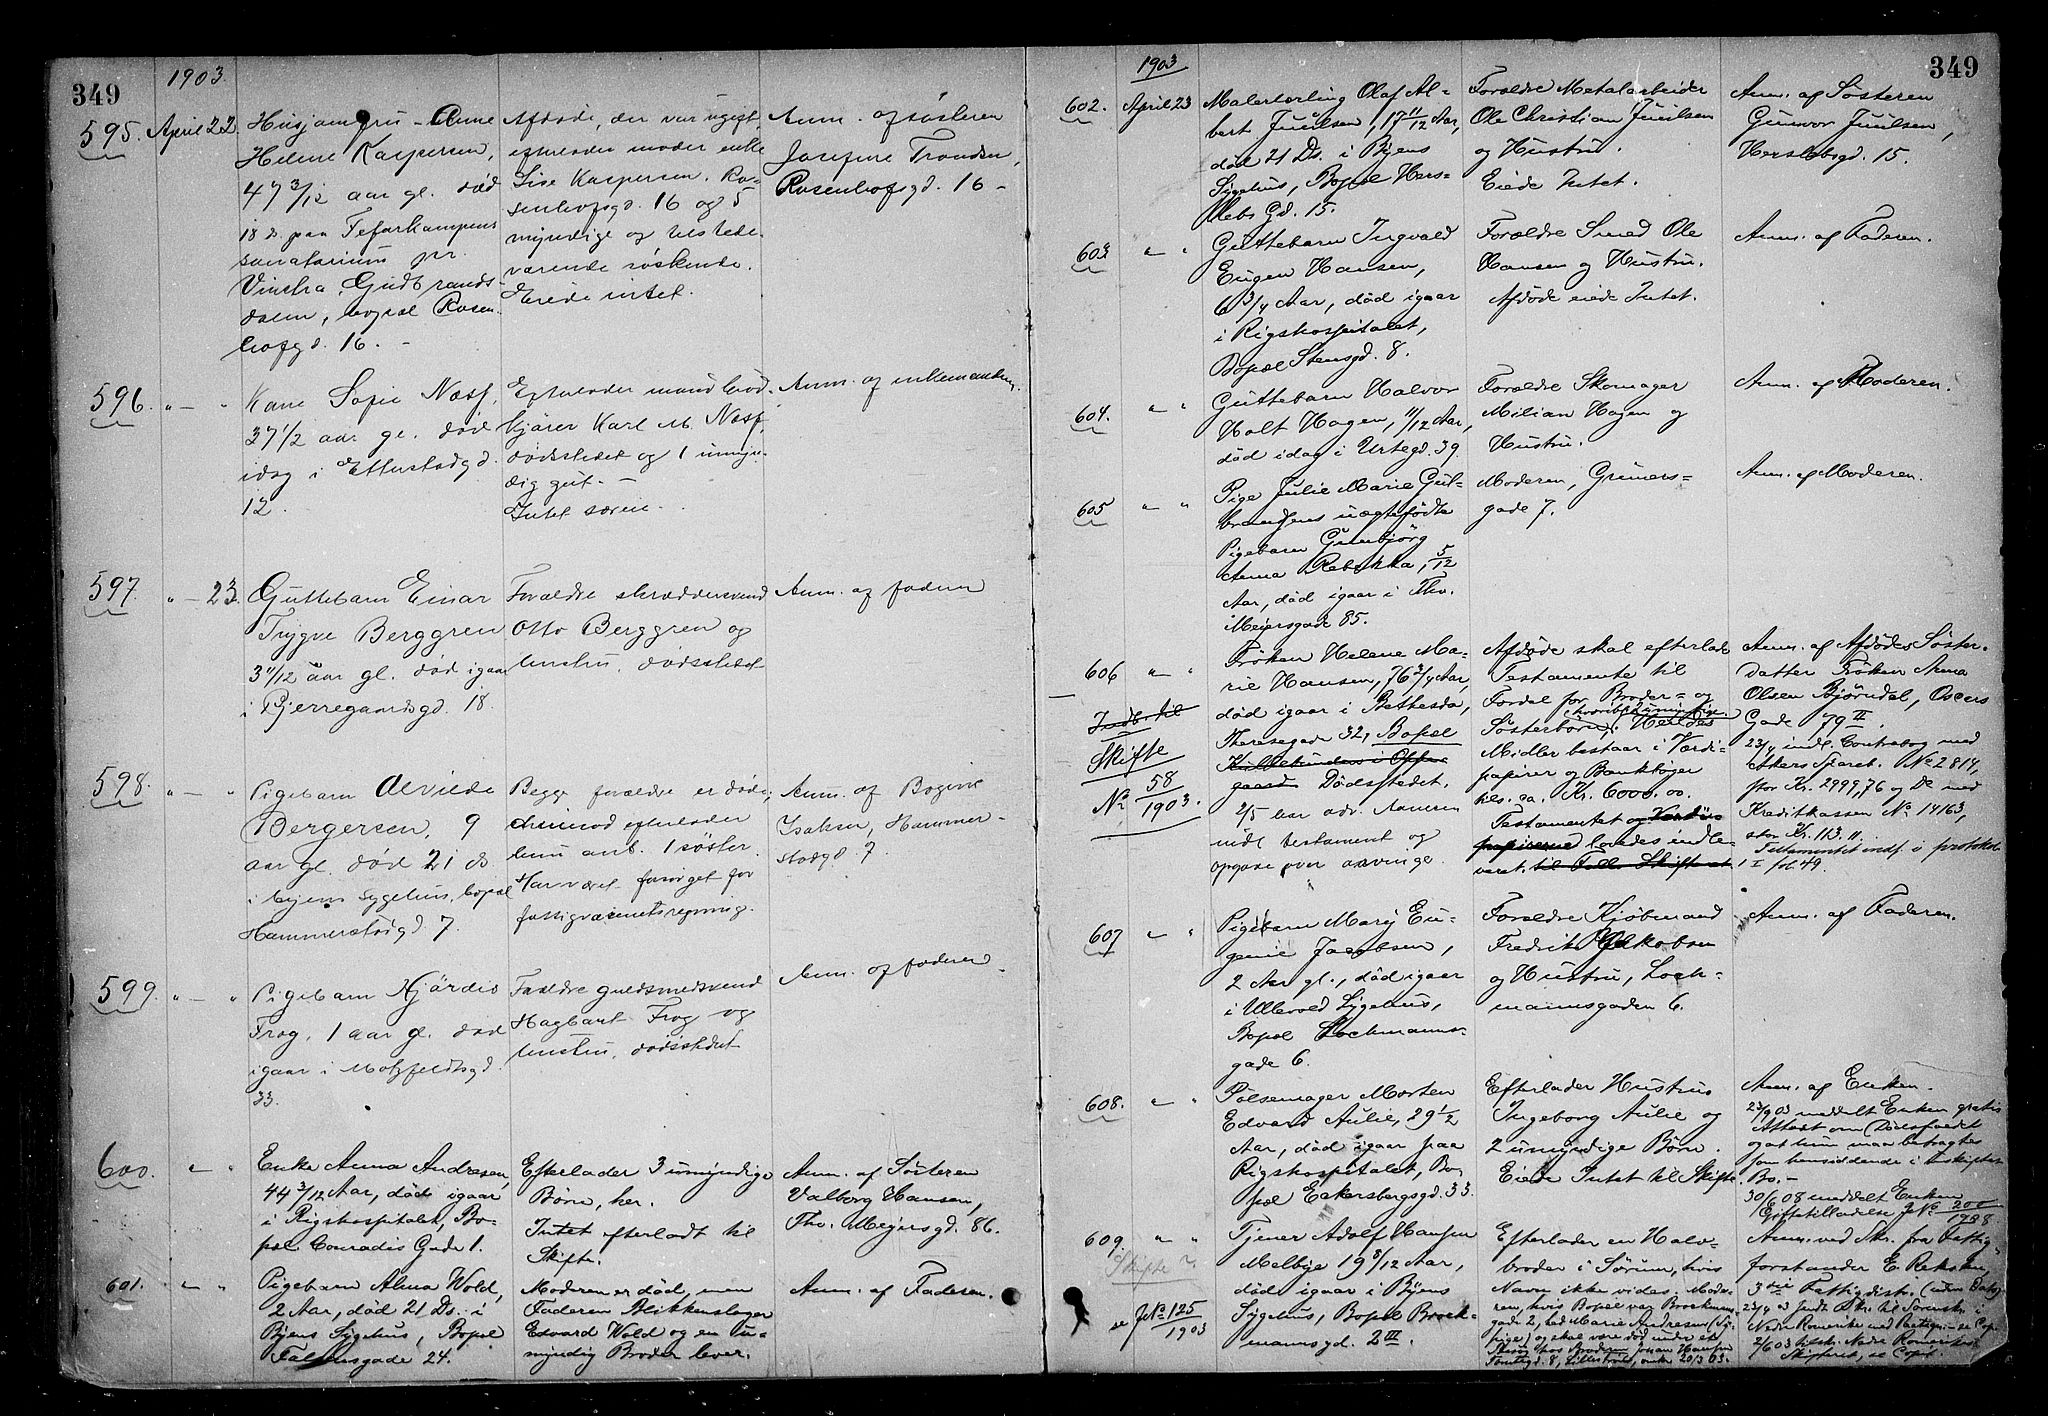 349
1903.
595. April 22
Husjomfru Anne
Helene Kaspersen,
47 3/12 aar gl. død
18 ds. paa Tefarkampens
sanatorium pr.
Vinstra, Gudbrands-
dalen, bopæl Rosen-
hofgd. 16. -
Afdøde, der var ugift,
efterlader moder enke
Lise Kaspersen, Ro-
senhofsgd. 16 og 5
myndige og tilstede-
værende søskende.
Eiede intet.
Anm. af søsteren
Josefine Trondsen,
Rosenhofsgd. 16 -
596. " - "
Kone Sofie Næss,
37 1/2 aar gl. død
idag i Etterstadgd.
12.
Efterlader mand brød-
kjører Karl M. Næss,
dødsstedet og 1 umyn-
dig gut. -
Intet særeie.
Anm. af enkemanden.
597 " - 23.
Guttebarn Einar
Trygve Berggren
3 11/12 aar gl. død igaar
i Bjerregaardsgd. 18.
Forældre skræddersvend
Otto Berggren og
hustru, dødsstedet
Anm. af faderen
598. " - "
Pigebarn Alvilde
Bergersen, 9
aar gl. død 21 ds
i byens sygehus, bopæl
Hammerstadgd. 7.
Begge forældre er døde,
derimod efterlader
hun ant. 1 søster.
Har været forsørget for
fattigvæsenets regning.
Anm. af Bogevine
Isaksen, Hammer-
stadgd. 7.
599. " - "
Pigebarn Hjørdis
Frog, 1 aar gl. død
igaar i Motzfeldtsgd.
33.
Forældre guldsmedsvend
Hagbart Frog og
hustru, dødsstedet
Anm. af faderen
600. " "
Enke Anna Andresen,
44 3/12 Aar, død igaar
i Rigshospitalet, Bo-
pæl Conradis Gade 1.
Efterlader 3 umyndige
Børn, her.
Intet efterladt til
Skifte.
Anm. af Søsteren
Valborg Hansen,
Thv. Meyersgd. 86.
601. " "
Pigebarn Alma Wold,
2 Aar, død 21 Ds. i
Byens Sygehus, Bopæl
Falsensgade 24.
Moderen er død, men
Faderen Blikkenslager
Edvard Wold og en Au-
myndig Broder lever.
Anm. af Faderen.
349
1903
602. April 23
Malerlærling Olaf Al-
bert Juulsen, 17 11/12 Aar,
død 21 Ds. i Byens
Sygehus, Bopæl Hers-
lebs Gd. 15.
Forældre Metalarbeider
Ole Christian Juulsen
og Hustru.
Eiede Intet.
Anm. af Søsteren
Gunvor Juulsen,
Herslebsgd. 15.
603 " "
Guttebarn Ingvald
Eugen Hansen,
6 3/4 Aar, død igaar
i Rigshospitalet,
Bopæl Stensgd. 8.
Forældre Smed Ole
Hansen og Hustru.
Afdøde eiede Intet.
Anm. af Faderen.
604. " "
Guttebarn Halvor
Holt Hagen, 11/12 Aar,
død idag i Urtegd. 39.
Forældre Skomager
Milian Hagen og
Hustru.
Anm. af Moderen.
605 " "
Pige Julie Marie Gul-
brandsens uægtefødte
Pigebarn Gunbjörg
Anna Rebekka, 5/12
Aar, død igaar i Thv.
Meiersgade 85.
Moderen, Grüners-
gade 7.
Anm. af Moderen.
606 " "
Indb. til
Skifte
No 58/1903.
Frøken Helene Ma-
rie Hansen, 76 3/4 Aar,
død igaar i Bethesda,
Theresegade 32, Bopæl
Dødsstedet.
2/5 testament og
opgave over arvinge.
Afdøde skal efterlade
Testamente til
Fordel for Broder- og
Søsterbørn, Hendes
Midler bestaar i Værdi-
papirer og Bankbøger
ca. Kr. 6000.00.
Testamentet og Værdi-
papirerne lovedes indle-
veret.
Anm. af Afdødes Søster-
datter Frøken Anna
Olsen Bjørndal, Oscars
Gade 79 II.
23/4 indl. Contrabog med
Akers Spareb. No 2814,
stor Kr. 2999,76 og Do med
Kreditkassen No 14163,
stor Kr. 113.11.
Testamentet indf. i protokol
I fol. 49.
607 " "
Pigebarn Mary Eu-
genie Jacobsen,
2 Aar gl., død igaar
i Ullevold Sygehus,
Bopæl Lochmanns-
gade 6.
Forældre Kjøbmand
Fredrik Jakobsen
og Hustru, Loch-
mannsgaden 6.
Anm. af Faderen.
608. " "
Pølsemager Morten
Edvard Aulie, 29 1/2
Aar, død igaar paa
Rigshospitalet, Bo-
pæl Eckersbergsgd. 33.
Efterlader Hustru
Ingeborg Aulie og
2 umyndige Børn.
Eiede Intet til Skifte.
Anm. af Enken.
23/4 03 meddelt Enken gratis
Attest om Dødsfaldet
og at hun maa betragtes
som hensiddende i uskiftet
Bo. -
30/6 08 meddelt Enken
Giftetilladelse J No 200/1908
609. " "
Skifte ?
se J No 125/1903
Tjener Adolf Hansen
Melbye 19 8/12 Aar,
død igaar i Byens
Sygehus, Bopæl Brock-
mannsgd. 2 III.
Efterlader en Halv-
broder i Sørum, hvis
Navn ikke vides. Mode-
ren, hvis Bopæl var Brockmans-
gade 2, hed Marie Andresen
og skal være død under et
hos Broderen Johan Hansen
8, Lillestrøm, 20/3 03.
Anm. ved Skr. fra Fattig-
forstander E. Reksten,
3die Fattigdist. (uden Dato)
23/4 03 Indb. Skr. til Sorenskr. i
Nedre Romerike med Begjær. - se Cop.
2/6 03 tilsk. Nedre Romerikes
Skifteret, se Copi.